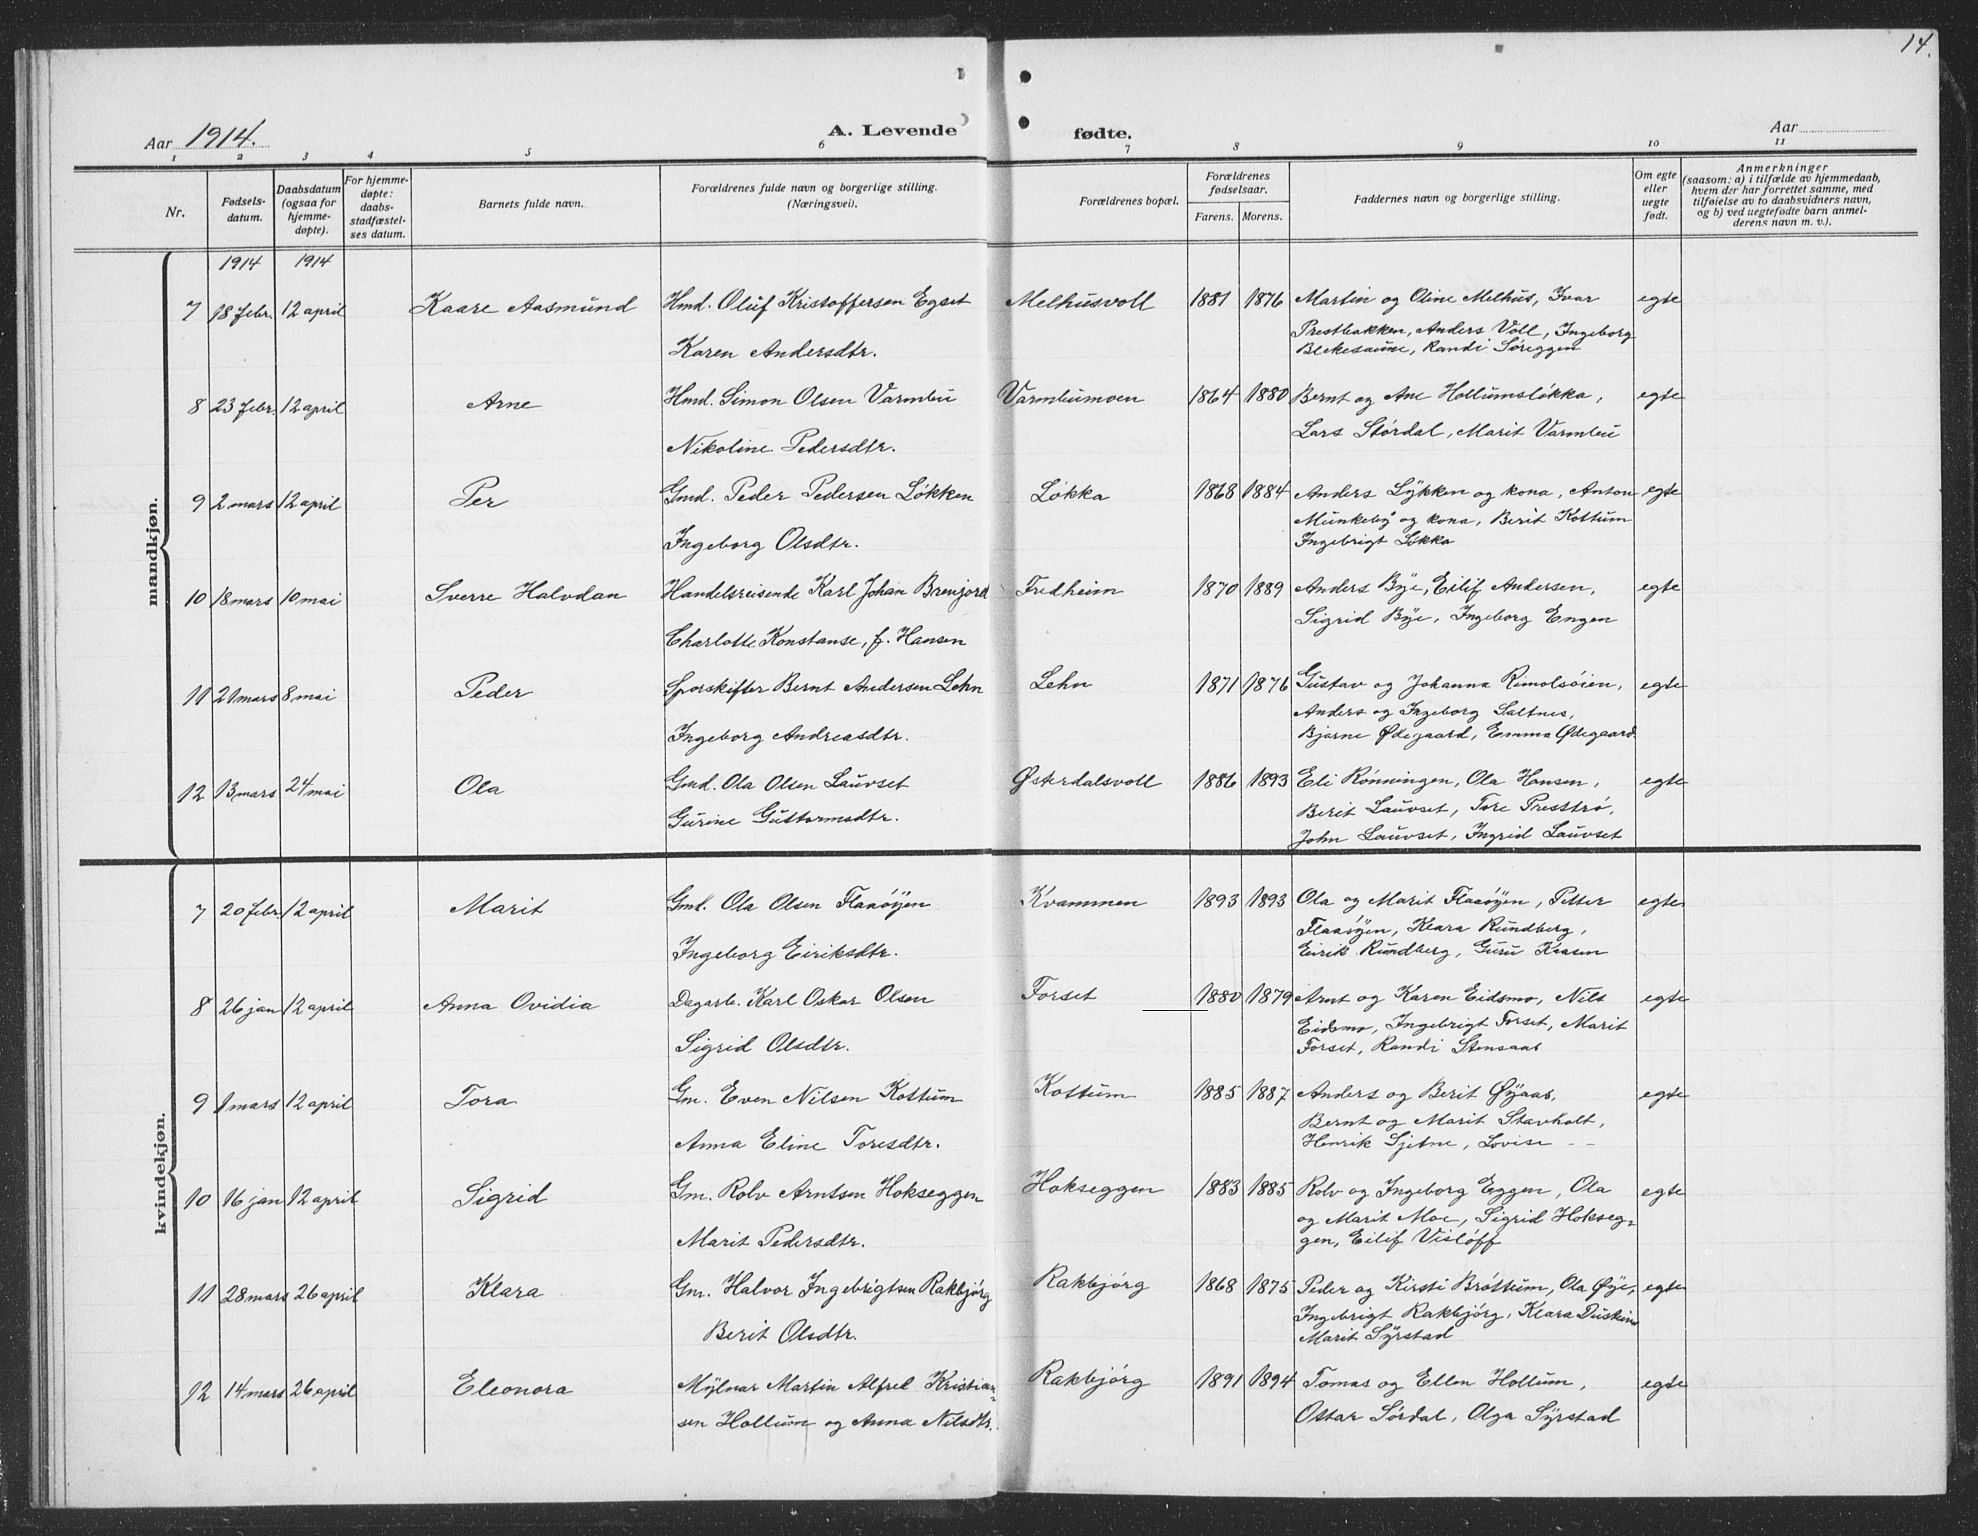 14.
Aar 1914. A. Levende fødte. Aar
1 2 3 4 5 6 7 8 9 10 11
Nr.
Fødsels-
datum.
Daabsdatum
(ogsaa for
hjemme-
døpte).
For hjemme-
døpte:
daabs-
stadfæstel-
ses datum.
Barnets fulde navn.
Forældrenes fulde navn og borgerlige stilling.
(Næringsvei).
Forældrenes bopæl.
Forældrenes
fødselsaar.
Farens. Morens.
Faddernes navn og borgerlige stilling.
Om egte
eller
uegte
født.
Anmerkninger
(saasom: a) i tilfælde av hjemmedaab,
hvem der har forrettet samme, med
tilføielse av to daabsvidners navn,
og b) ved uegtefødte barn anmel-
derens navn m. v.).
mandkjøn.
1914 1914
7 18 febr. 12 april Kaare Aasmund Hmd. Oluf Kristoffersen Egset Melhusvoll 1881 1876 Martin og Oline Melhus, Ivar egte
Prestbakken, Anders Voll, Ingeborg
Karen Andersdtr. Blekesaune, Randi Søreggen
8 23 febr. 12 april Arne Hmd. Simon Olsen Varmbu Varmbumoen 1864 1880 Bernt og Ane Hollumsløkka, egte
Nikoline Pedersdtr. Lars Størdal, Marit Varmbu
9 2 mars 12 april Per Gmd. Peder Pedersen Løkken Løkka 1868 1884 Anders Lykken og kona, Anton egte
Munkeby og kona, Berit Kottum
Ingeborg Olsdtr. Ingebrigt Løkka
10 18 mars 10 mai Sverre Halvdan Handelsreisende Karl Johan Brenjord Fredheim 1870 1889 Anders Bye, Eilif Andersen, egte
Charlotte Konstanse, f. Hansen Sigrid Bye, Ingeborg Engen
11 21 mars 8 mai Peder Sporskifter Bernt Andersen Lehn Lehn 1871 1876 Gustav og Johanna Rimolsøien, egte
Anders og Ingeborg Saltnes,
Ingeborg Andreasdtr. Bjarne Ødegaard, Emma Ødegaard
12 13 mars 24 mai Ola Gmd. Ola Olsen Lauvset Østerdalsvoll 1886 1893 Eli Rønningen, Ola Hansen, egte
Gurine Guttormsdtr. Berit Lauvset, Tore Presttrø,
John Lauvset, Ingrid Lauvset
kvindekjøn.
7 20 febr. 12 april Marit Gmd. Ola Olsen Flaaøyen Kvammen 1893 1893 Ola og Marit Flaaøyen, Petter egte
Flaaøyen, Klara Rundberg,
Ingeborg Eiriksdtr. Eirik Rundberg, Guru Kaasen
8 26 jan 12 april Anna Ovidia Dagarb. Karl Oskar Olsen Forset 1880 1879 Arnt og Karen Eidsmo, Nils egte
Eidsmo, Ingebrigt Forset, Marit
Sigrid Olsdtr. Forset, Randi Stensaas
9 1 mars 12 april Tora Gm. Even Nilsen Kottum Kottum 1885 1887 Anders og Berit Øyaas, egte
Bernt og Marit Stavholt,
Anna Eline Toresdtr. Henrik Sjetne, Lovise - -
10 16 jan 12 april Sigrid Gm. Rolv Arntsen Hokseggen Hokseggen 1883 1885 Rolv og Ingeborg Eggen, Ola egte
og Marit Moe, Sigrid Hokseg-
Marit Pedersdtr. gen, Eilif Visløff
11 28 mars 26 april Klara Gm. Halvor Ingebrigtsen Rakbjørg Rakbjørg 1868 1875 Peder og Kirsti Brøttum, Ola Øye, egte
Ingebrigt Rakbjørg, Klara Duskin
Berit Olsdtr. Marit Syrstad
12 14 mars 26 april Eleonora Mylnar Martin Alfred Kristian- Rakbjørg 1891 1894 Tomas og Ellen Hollum, egte
sen Hollum og Anna Nilsdtr. Ottar Sørdal, Olga Syrstad